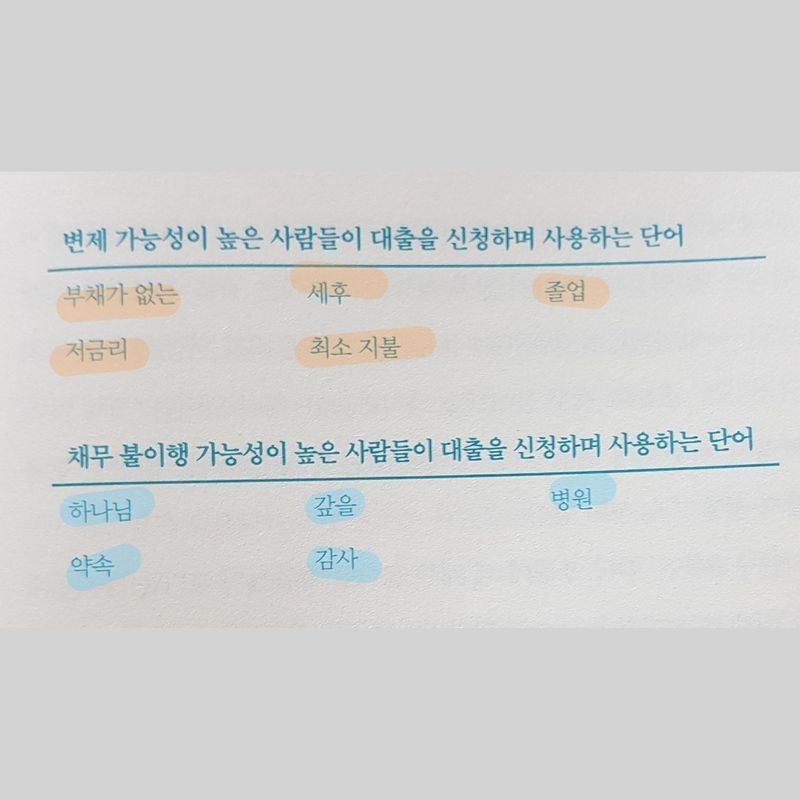 변제 가능성이 높은 사람들이 대출을 신청하며 사용하는 단어
부채가 없는 세후 졸업
저금리 최소 지불
채무 불이행 가능성이 높은 사람들이 대출을 신청하며 사용하는 단어
하나님 갚을 병원
약속 감사